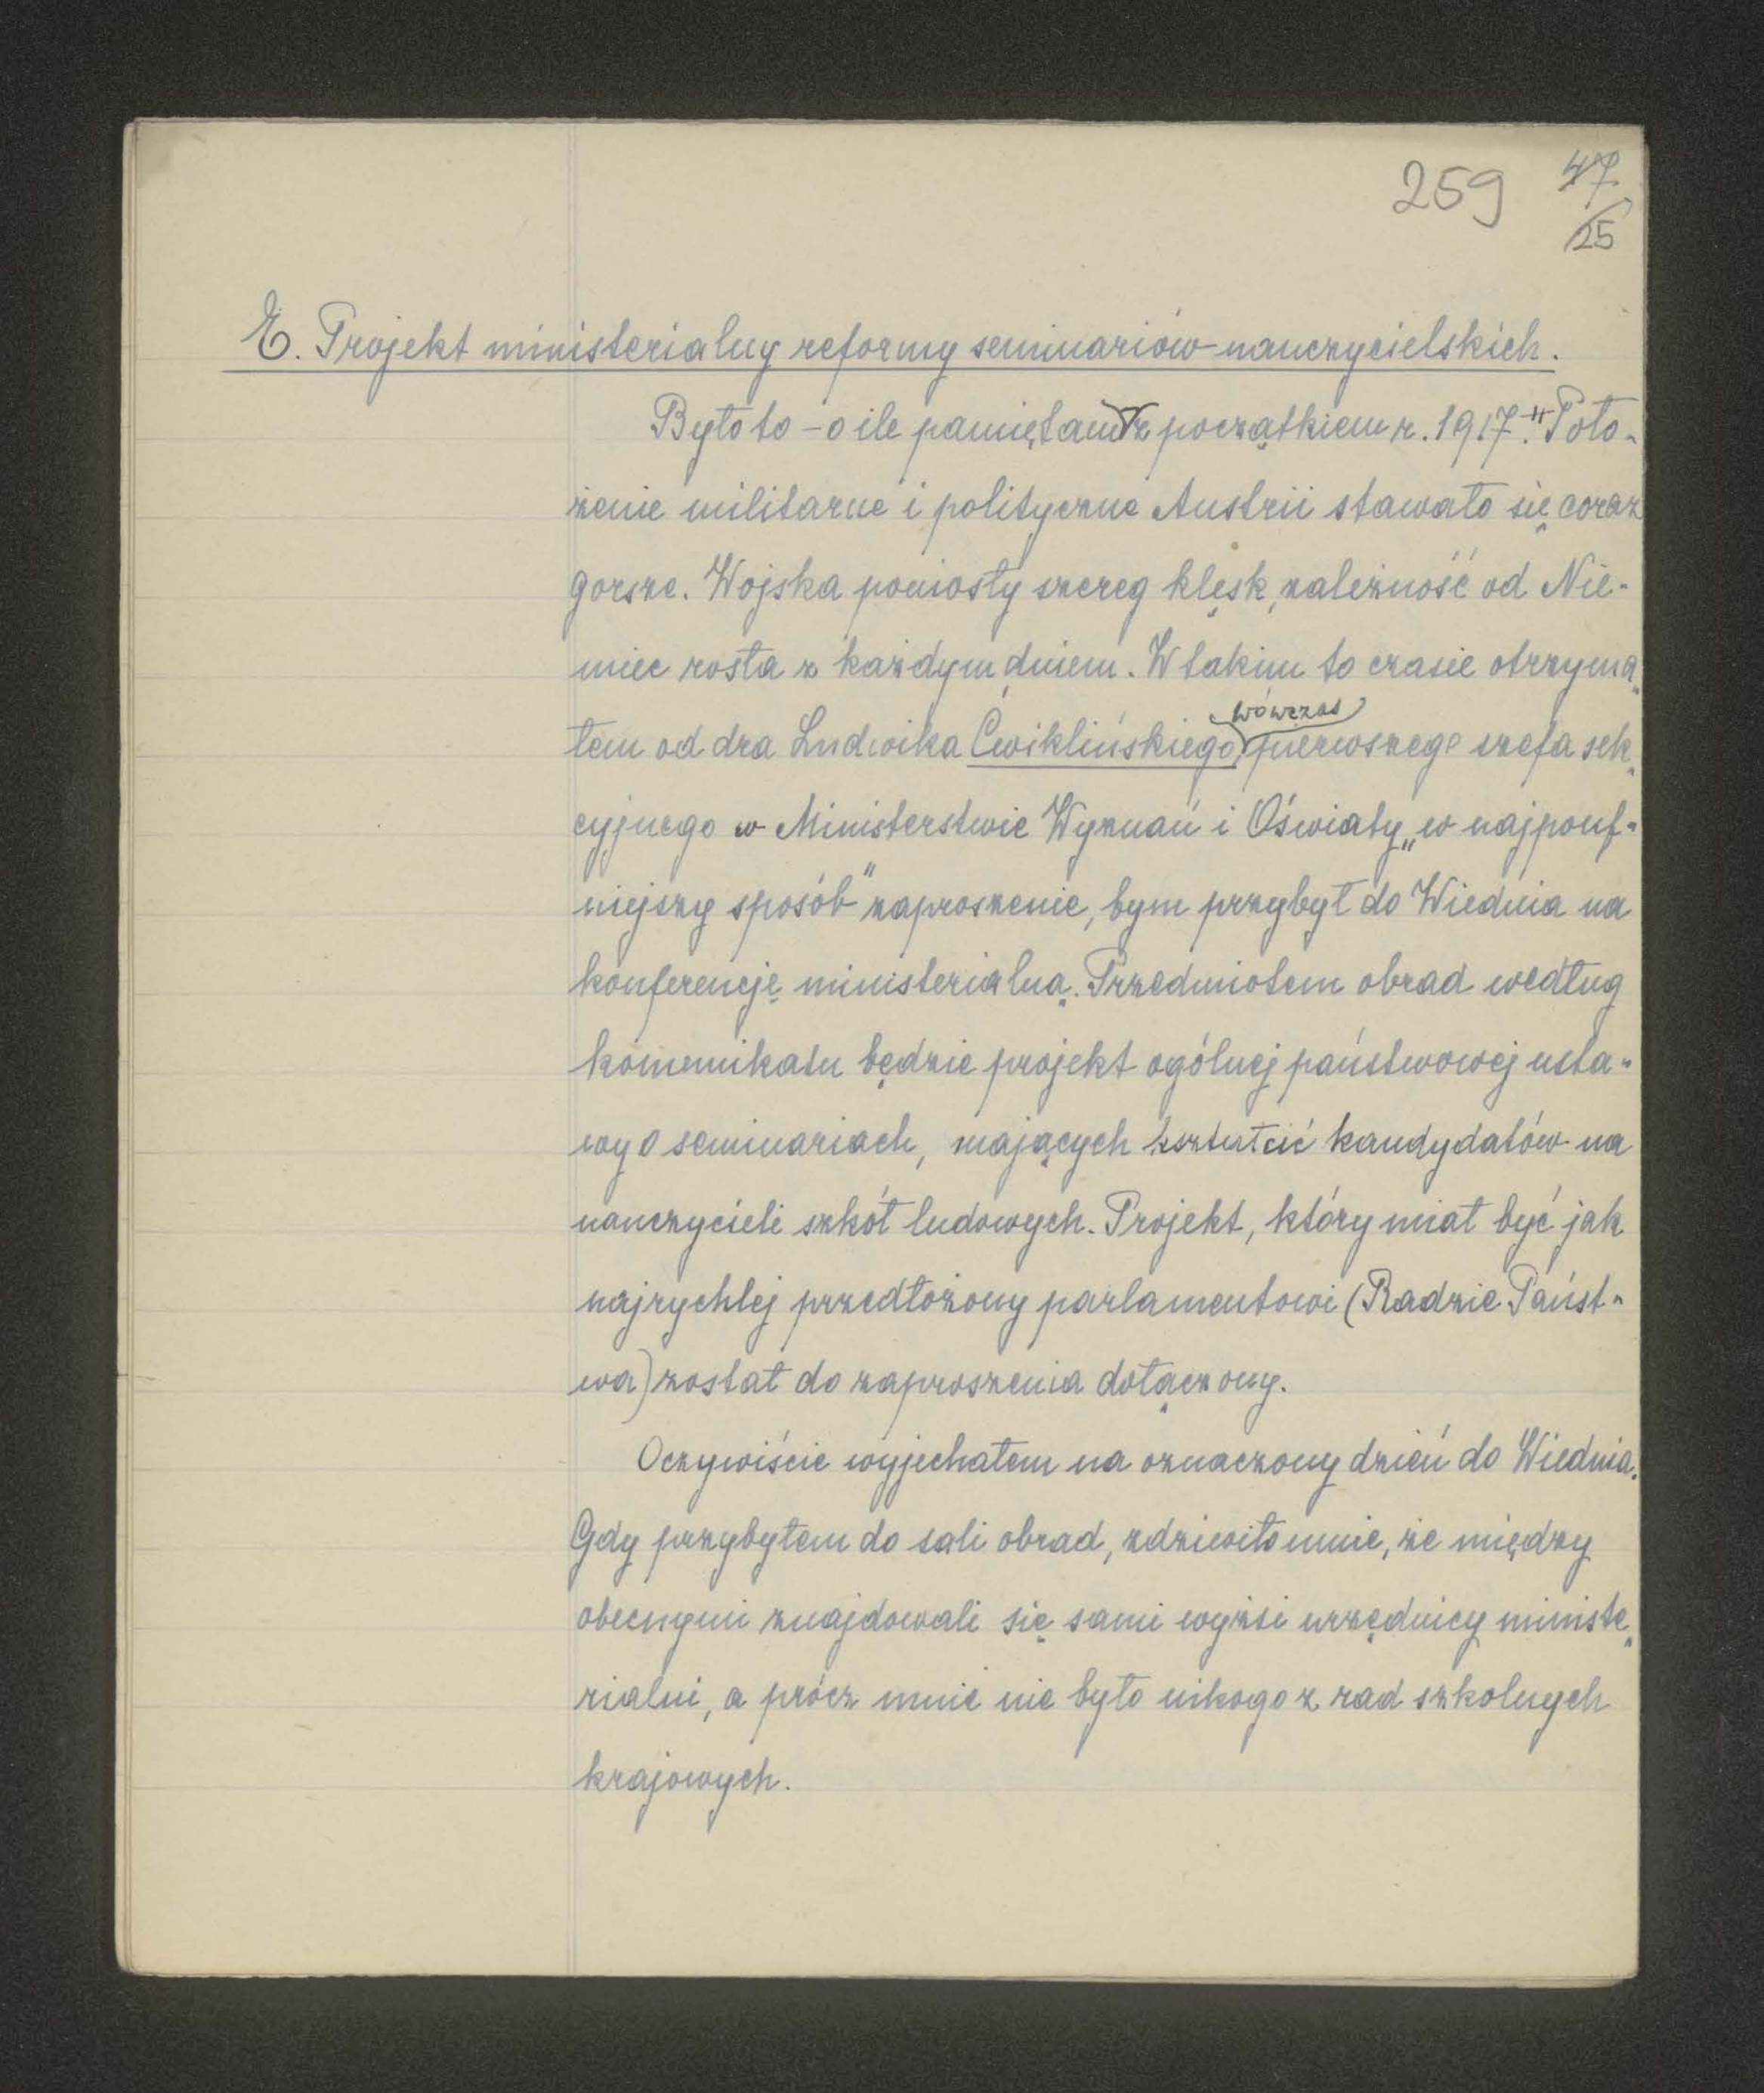 259 47
25
E. Projekt ministerialny reformy seminariów nauczycielskich.
Było to – o ile pamiętam z początkiem r. 1917. Poło-
żenie militarne i polityczne Austrii stawało się coraz
gorsze. Wojska poniosły szereg klęsk, zależność od Nie-
miec rosła z każdym dniem. W takim to czasie otrzyma-
wówczas
łem od dra Ludwika Ćwiklińskiego, pierwszego szefa sek-
cyjnego w Ministerstwie Wyznań i Oświaty „w najpouf-
niejszy sposób" zaproszenie, bym przybył do Wiednia na
konferencję ministerialną. Przedmiotem obrad według
komunikatu będzie projekt ogólnej państwowej usta-
wy o seminariach, mających kształcić kandydatów na
nauczycieli szkół ludowych. Projekt, który miał być jak
najrychlej przedłożony parlamentowi (Radzie Państ-
wa) został do zaproszenia dołączony.
Oczywiście wyjechałem na oznaczony dzień do Wiednia.
Gdy przybyłem do sali obrad, zdziwiło mnie, że między
obecnymi znajdowali się sami wyżsi urzędnicy ministe-
rialni, a prócz mnie nie było nikogo z rad szkolnych
krajowych.